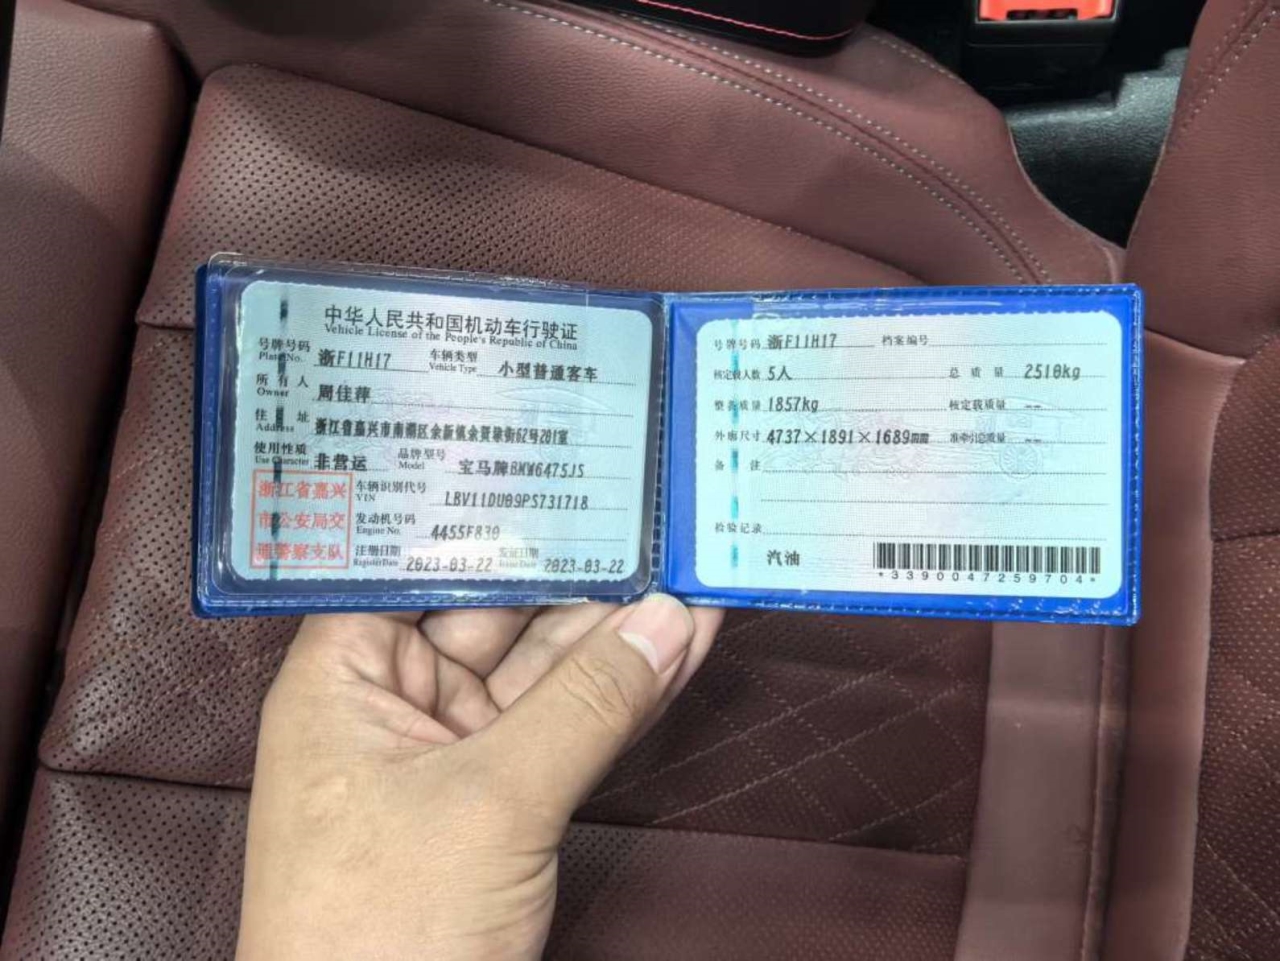 中华人民共和国机动车行驶证
Vehicle License of the People's Republic of China
号牌号码 浙F11H17 车辆类型 小型普通客车
Plate No. Vehicle Type
所有人 周佳萍
Owner
住址 浙江省嘉兴市南湖区余新镇余贤埭街62号201室
Address
使用性质 非营运 品牌型号 宝马牌BMW6475JS
Use Character Model
浙江省嘉兴
市公安局交
通警察支队
车辆识别代号 LBV11DU09PS731718
VIN
发动机号码 4455F830
Engine No.
注册日期 2023-03-22 发证日期 2023-03-22
Register Date Issue Date
号牌号码 浙F11H17 档案编号
核定载人数 5人 总质量 2510kg
整备质量 1857kg 核定载质量 --
外廓尺寸 4737×1891×1689mm 准牵引总质量 --
备注
检验记录
汽油
*3390047259704*